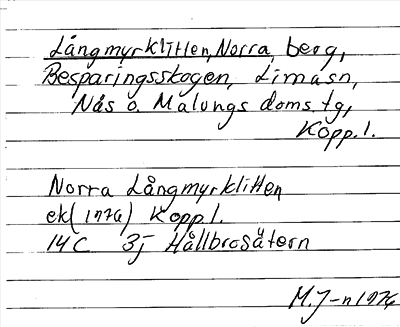 Långmyrklitten, Norra, berg,
Besparingsskogen, Limasn,
Nås o Malungs doms.tg,
Kopp.l.
Norra Långmyrklitten
ek(1976) Kopp.l.
14C 3j Hållbrosätern
M.J-n 1976